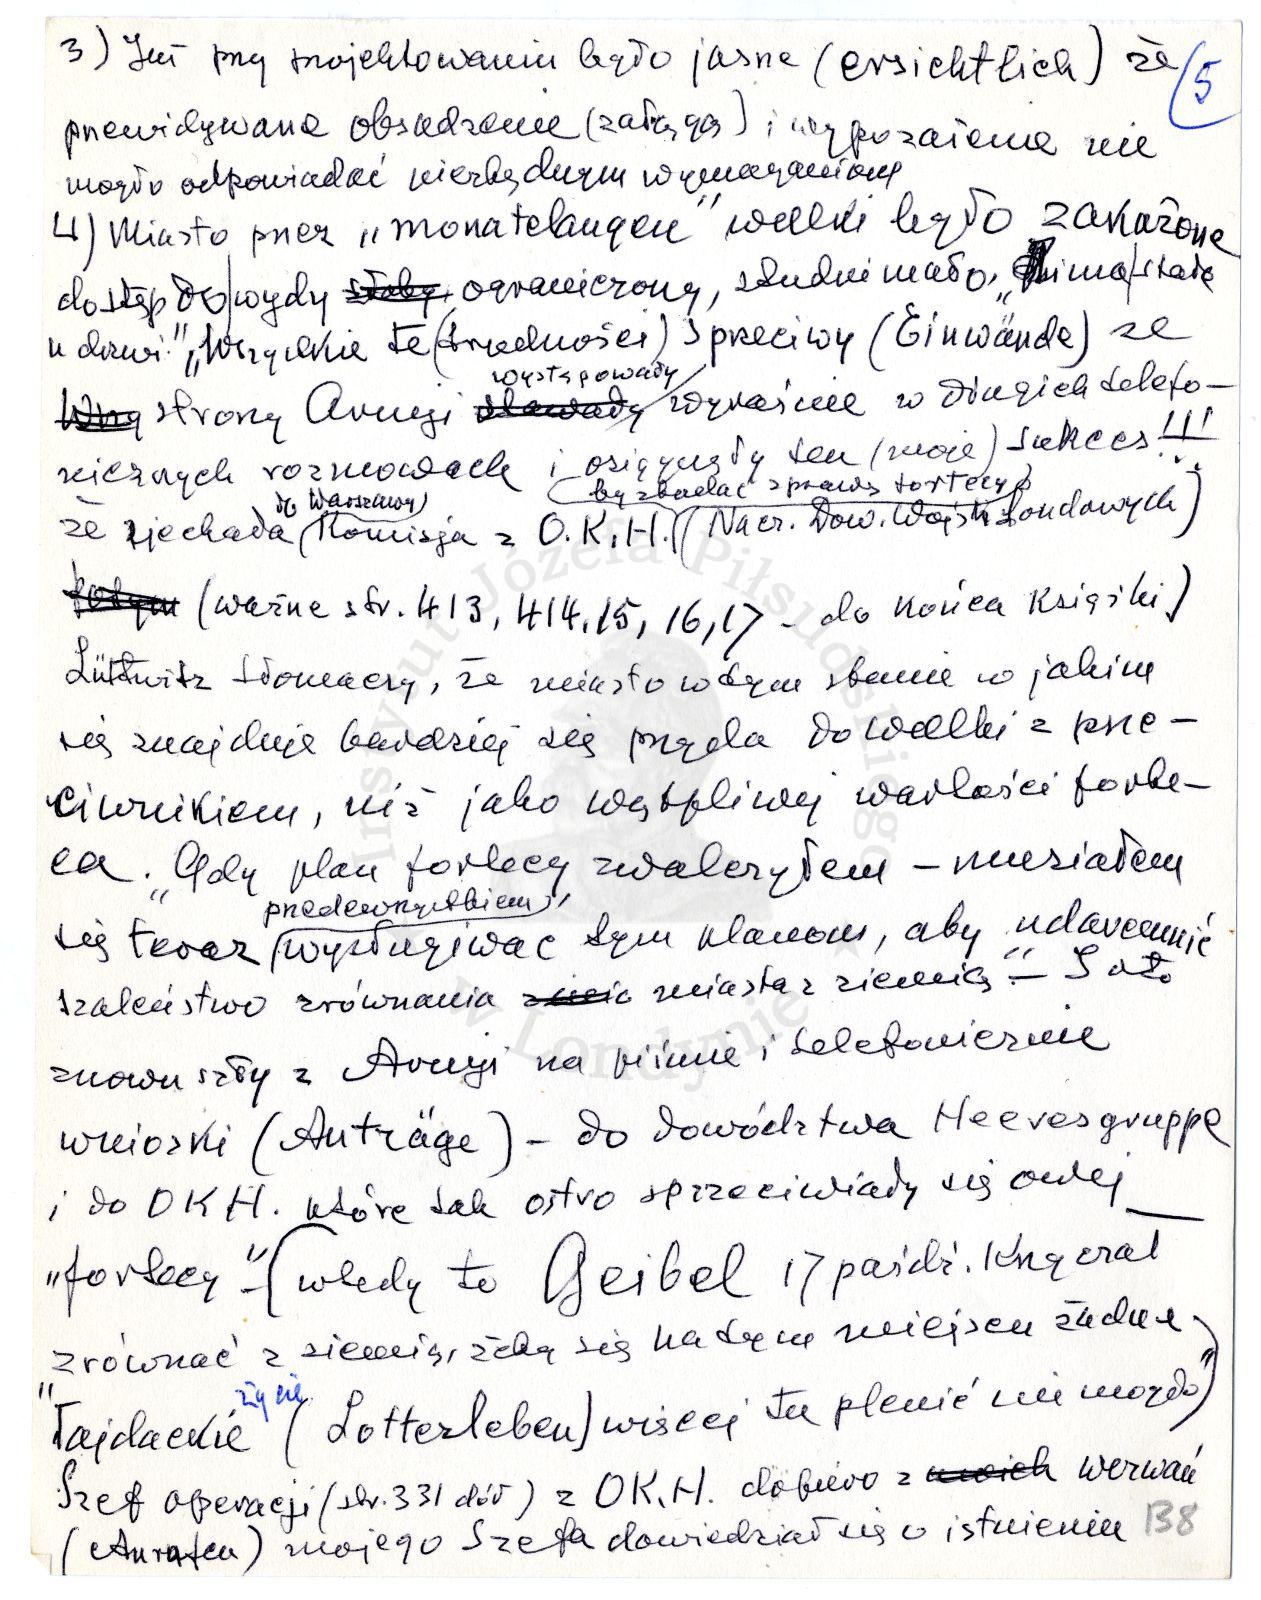 3) Już przy projektowaniu było jasne (ersichtlich) że (5
przewidywane obsadzenie (załogą) i wyposażenie nie
mogło odpowiadać niezbędnym wymaganiom
4) Miasto przez „monatelangen” walki było zakażone
dostęp do wody słaby, ograniczony, studni mało, „zima stała
u drzwi.” „Wszystkie te (trudności) sprzeciwy (Einwände) ze
strony Armji występowały wyraźnie w długich telefo-
nicznych rozmowach i osiągnęły ten (moje) sukces!!!
że zjechała do Warszawy (Komisja z O.K.H. (by zbadać sprawę fortecy) (Nacz. Dow. Wojsk Londowych)
potym (ważne str. 413, 414, 15, 16, 17 - do końca książki)
Lüttwitz tłomaczy, że miasto w tym stanie w jakim
się znajduje bardziej się przyda do walki z prze-
ciwnikiem, niż jako wątpliwej wartości forte-
ca. „Gdy plan fortecy zwalczyłem - musiałem
się teraz przedewszystkiem wysługiwać tym planom, aby udaremnić
szaleństwo zrównania miasta z ziemią” - I oto
znowu szły z Armji na piśmie i telefonicznie
wnioski (Anträge) - do dowództwa Heeresgruppe
i do OKH. które tak ostro sprzeciwiały się owej
„fortecy” - (wtedy to Geibel 17 paźdź. krzyczał
zrównać z ziemią, żeby się na tym miejscu żadne
"łajdackie życie (Lotterleben) więcej tu plenić nie mogło")
Szef operacji (str. 331 dół) z OK.H. dopiero z moich wezwań
(Anrufen) mojego Szefa dowiedział się o istnieniu 138
Instytut Józefa Piłsudskiego
w Londynie